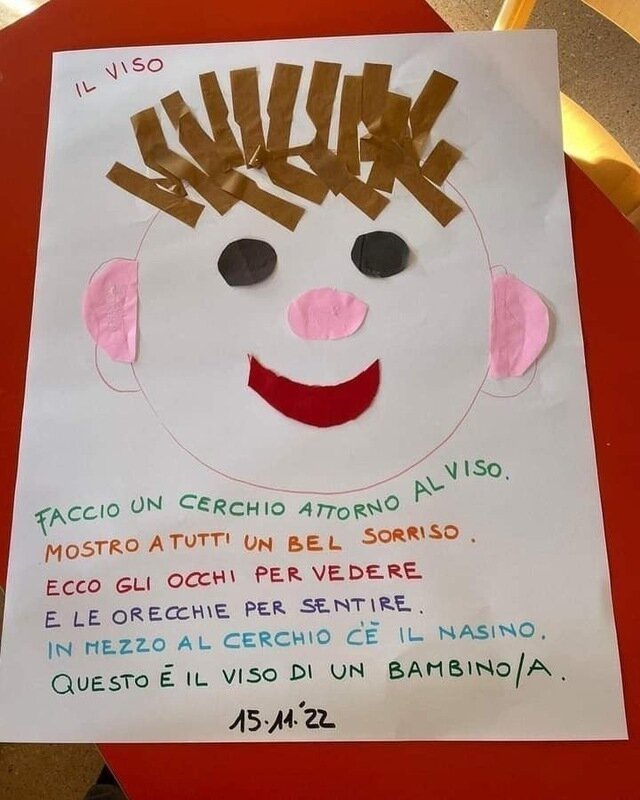 IL VISO
FACCIO UN CERCHIO ATTORNO AL VISO.
MOSTRO A TUTTI UN BEL SORRISO.
ECCO GLI OCCHI PER VEDERE
E LE ORECCHIE PER SENTIRE.
IN MEZZO AL CERCHIO C'È IL NASINO.
QUESTO É IL VISO DI UN BAMBINO/A.
15.11.'22